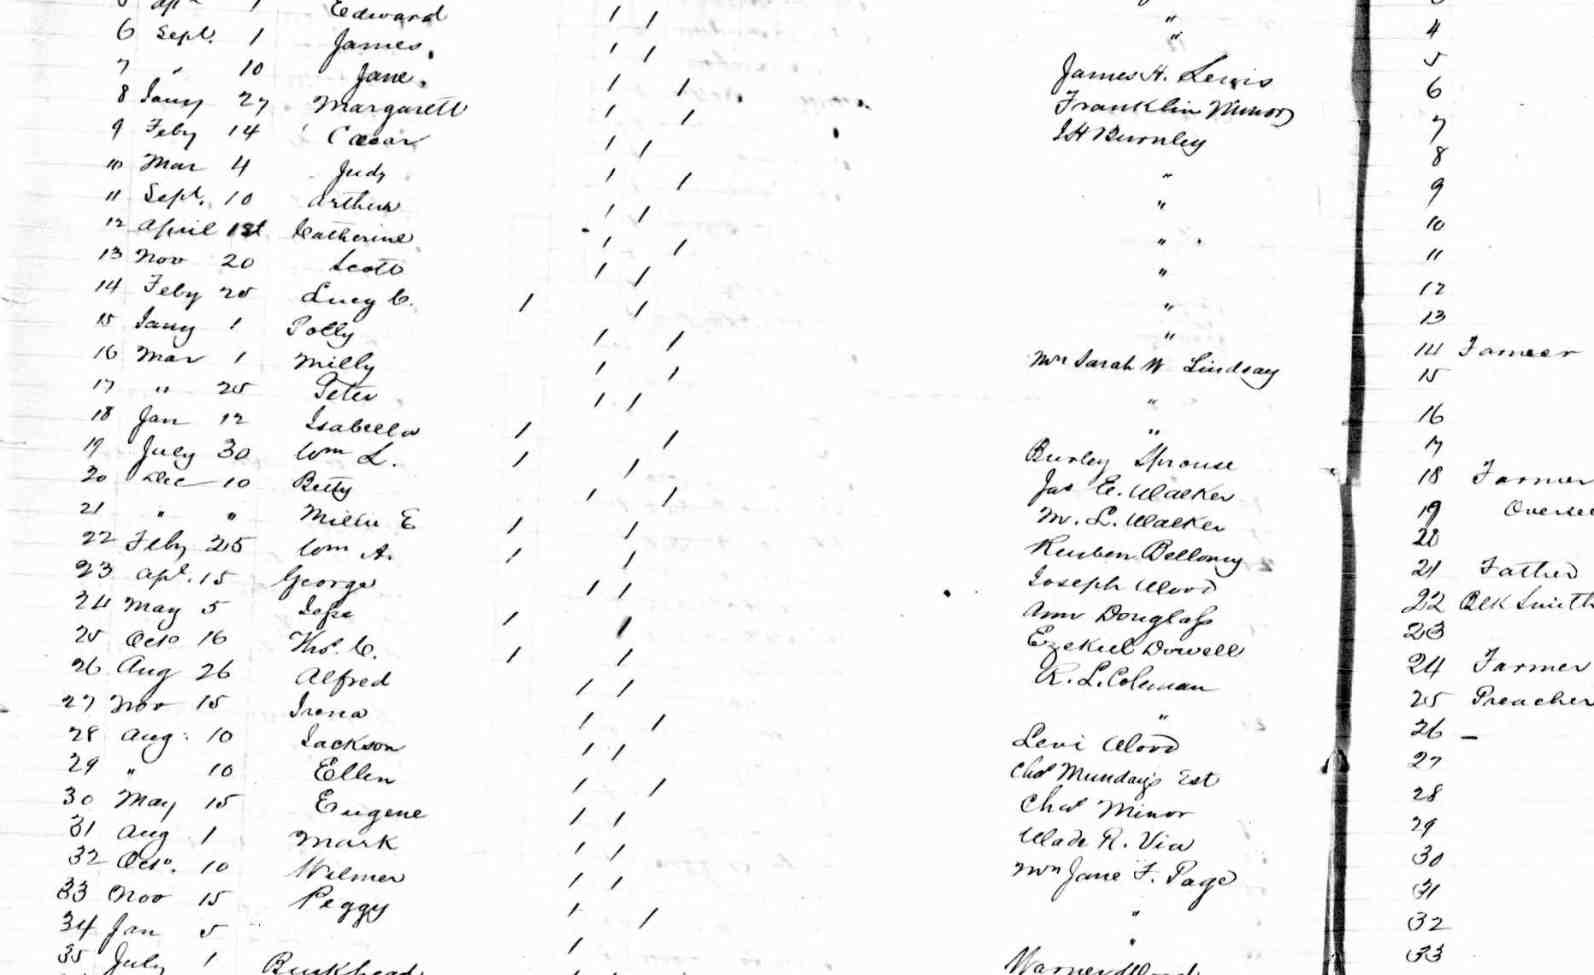 5 Apl 1 Edward "
6 Sept. 1 James "
7 " 10 Jane James H. Lewis
8 Jany 27 Margarett Franklin Minor
9 Feby 14 Caesar J H Burnley
10 Mar 4 Judy "
11 Sept. 10 Arthur "
12 April 1st Catherine "
13 Nov 20 Scott "
14 Feby 25 Lucy C. "
15 Jany 1 Polly "
16 Mar 1 Milly Mrs Sarah W Lindsay
17 " 25 Peter "
18 Jan 12 Isabella "
19 July 30 Wm L. Burley Sprouse
20 Dec 10 Betty Jas E. Walker
21 " " Millie E M. L. Walker
22 Feby 25 Wm A. Reuben Bellomy
23 Apl. 15 George Joseph Wood
24 May 5 Ann Douglass
25 Octo 16 Thos. C. Ezekiel Dowell
26 Aug 26 Alfred R. L. Coleman
27 Nov 15 Irena "
28 Aug. 10 Jackson Levi Wood
29 " 10 Ellen Chas Munday's Est
30 May 15 Eugene Chas Minor
31 Aug 1 Mark Wade R. Via
32 Octo. 10 Wilmer Mrs Jane F. Page
33 Nov 15 Peggy "
34 Jan 5 "
35 July 1 Buckhead Warner Wood
4
5
6
7
8
9
10
11
12
13
14 Farmer
15
16
17
18 Farmer
19 Oversee
20
21 Father
22 Blk Smith
23
24 Farmer
25 Preacher
26 –
27
28
29
30
31
32
33